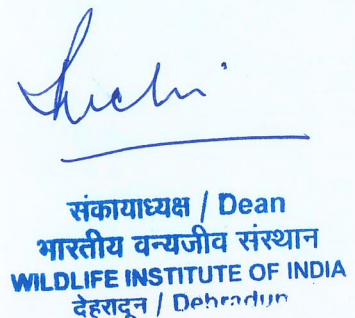 संकायाध्यक्ष / Dean
भारतीय वन्यजीव संस्थान
WILDLIFE INSTITUTE OF INDIA
देहरादून / Dehradun